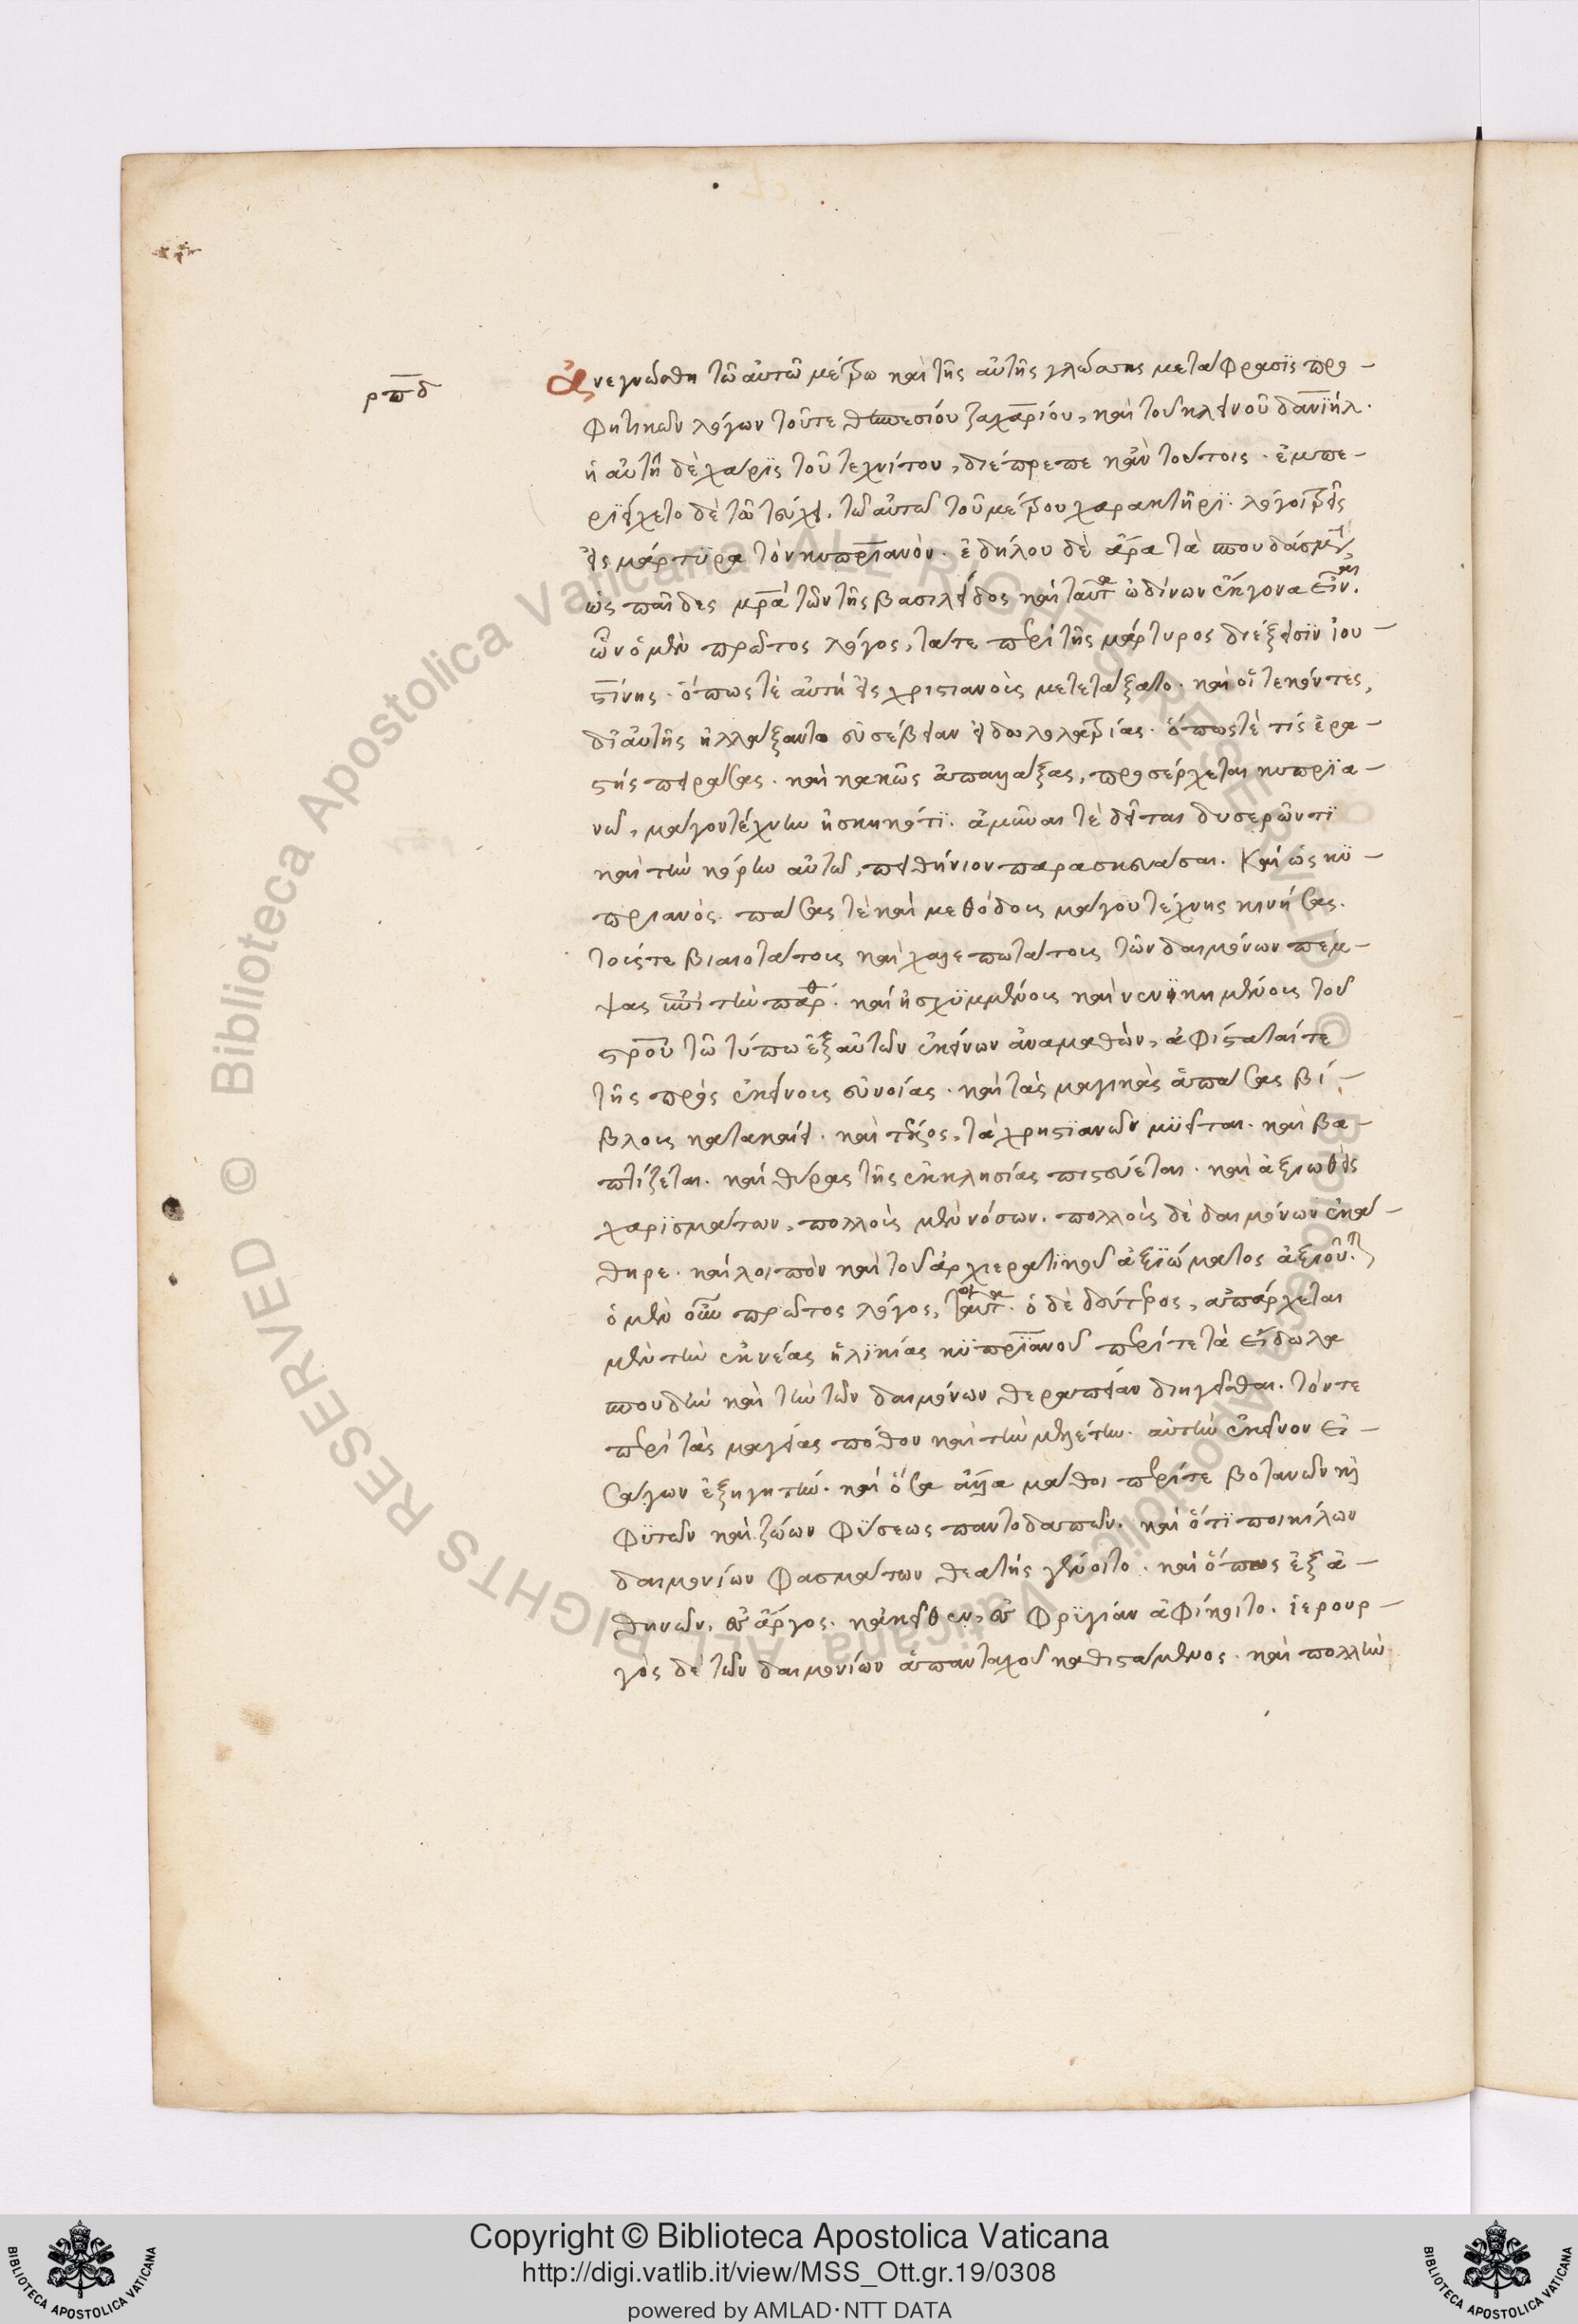 ρπδ
Ἀνεγνώσθη τῶ αὐτῶ μέτρω καὶ τῆς αὐτῆς γλώσσης μετάφρασϊς προ-
φητικῶν λόγων τοῦτε θεσπεσίου ζαχαρίου, καὶ τοῦ κλεινοῦ δανϊήλ.
ἡ αὐτὴ δὲ χάρϊς τοῦ τεχνίτου, διέπρεπε κἀν τούτοις. ἐμπε-
ρϊείχετο δὲ τῶ τεύχει. τῶ αὐτῶ τοῦ μέτρου χαρακτῆρϊ. λόγοι τρεῖς
εἰς μάρτϋρα τὸν κυπρϊανόν. ἐδήλου δὲ ἄρα τὰ σπουδάσματα,
ὡς παῖδες μητέρα τῶν τῆς βασιλείδος καὶ ταῦτα ὠδίνων ἔκγονα εἶναι.
ὧν ὁ μὲν πρῶτος λόγος, τά τε περὶ τῆς μάρτυρος διέξεισϊν ἰου-
στίνης. ὅπως τὲ αὐτὴ εἰς χριστιανοὺς μετετάξατο. καὶ οἱ τεκόντες,
δι' αὐτῆς ἠλλάξαντο εὐσέβειαν εἰδωλολατρίας. ὅπως τὲ τίς ἐρα-
στὴς πειράσας. καὶ κακῶς ἀπαλλάξας, προσέρχεται κυπρϊα-
νῶ, μάγον τέχνην ἠσκηκότϊ. ἀμῦναι τὲ δεῖται δυσερῶντϊ
καὶ τὴν κόρην αὐτῶ, πειθήνιον παρασκευάσαι. Καὶ ὡς κϋ-
πριανὸς πάσας τὲ καὶ μεθόδους μάγου τέχνης κινήσας.
τούς τε βιαιοτάτους καὶ χαλεπωτάτους τῶν δαιμόνων πέμ-
ψας ἐπὶ τὴν παρθένον. καὶ ἠσχϋμμένους καὶ νενϊκημένους τοῦ
σταυροῦ τῶ τύπω ἐξ αὐτῶν ἐκείνων ἀναμαθὼν, ἀφίσταταί τε
τῆς πρὸς ἐκείνους εὐνοίας. καὶ τὰς μαγικὰς ἁπάσας βί-
βλους κατακαίει. καὶ τέλος, τὰ χρηστϊανῶν μϋεῖται. καὶ βα-
πτίζεται. καὶ θύρας τῆς ἐκκλησίας πιστεύεται. καὶ ἀξιωθεὶς
χαρϊσμάτων, πολλοὺς μὲν νόσων. πολλοὺς δὲ δαιμόνων ἐκά-
θηρε. καὶ λοιπὸν καὶ τοῦ ἀρχιερατϊκοῦ ἀξϊώματος ἀξιοῦται.
ὁ μὲν οὖν πρῶτος λόγος, τοιαῦτα. ὁ δὲ δεύτερος, ἀπάρχεται
μὲν τὴν ἐκ νέας ἡλϊκίας κϋπρϊανοῦ περί τε τὰ εἴδωλα
σπουδὴν καὶ τὴν τῶν δαιμόνων θεραπείαν διηγεῖσθαι. τόν τε
περὶ τὰς μαγείας πόθον καὶ τὴν μελέτην. αὐτὸν ἐκεῖνον εἰ-
σάγων ἐξηγητήν. καὶ ὅσα ἄλλα μάθοι περί τε βοτανῶν καὶ
φϋτῶν καὶ ζώων φϋσεως παντοδαπῶν. καὶ ὅτϊ ποικίλων
δαιμονίων φασμάτων θεατὴς γένοιτο. καὶ ὅπως ἐξ ἀ-
θηνῶν, εἰς ἄργος. κἀκεῖθεν, εἰς φρϋγίαν ἀφίκοιτο. ἱερουρ-
γὸς δὲ τῶν δαιμονίων ἁπανταχοῦ καθιστάμενος. καὶ πολλὴν
Copyright © Biblioteca Apostolica Vaticana
http://digi.vatlib.it/view/MSS_Ott.gr.19/0308
powered by AMLAD·NTT DATA